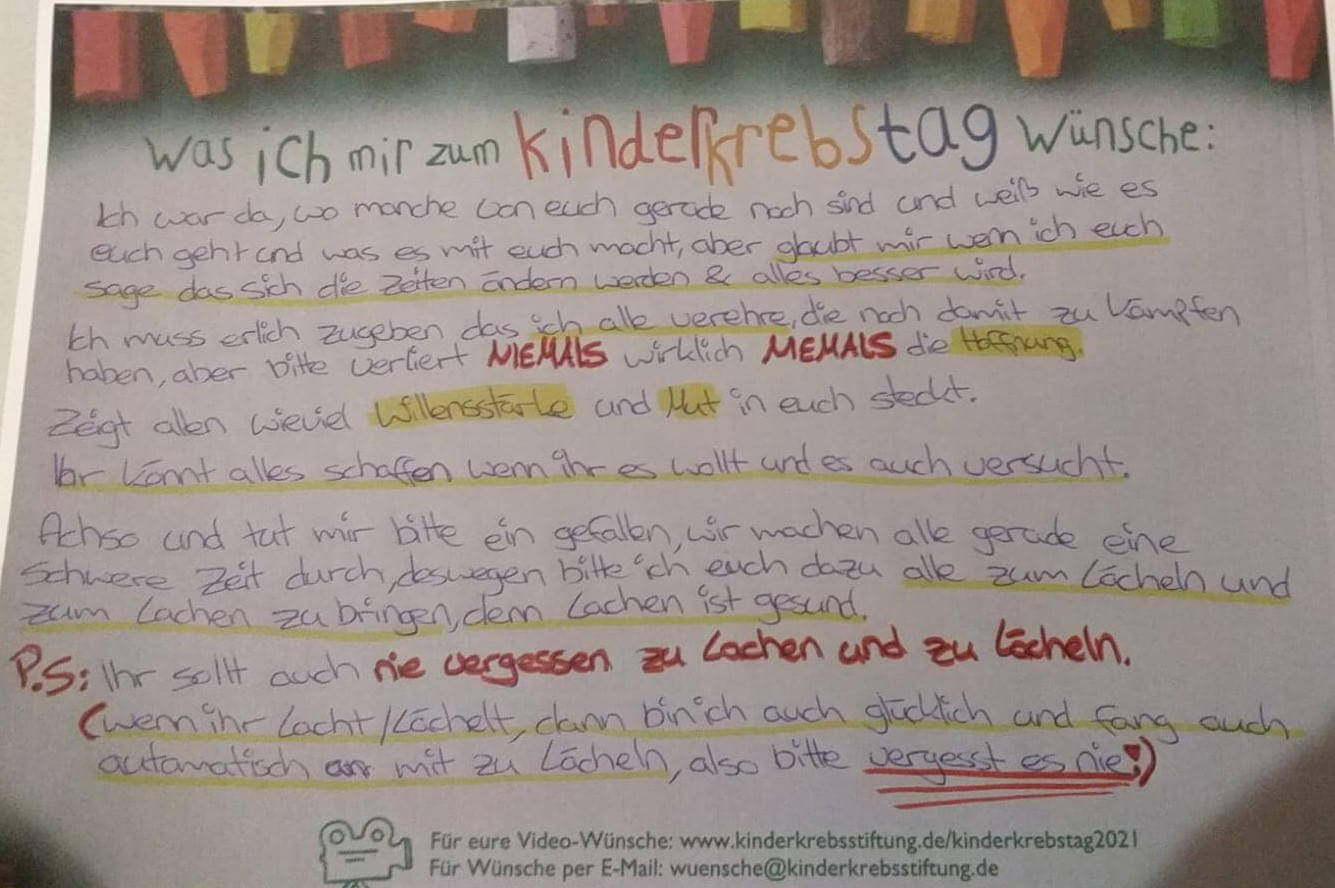 was ich mir zum kinderkrebstag wünsche:
Ich war da, wo manche von euch gerade noch sind und weiß wie es
euch geht und was es mit euch macht, aber glaubt mir wenn ich euch
sage das sich die Zeiten ändern werden & alles besser wird.
Ich muss erlich zugeben das ich alle verehre, die noch damit zu kämpfen
haben, aber bitte verliert NIEMALS wirklich NIEMALS die Hoffnung.
Zeigt allen wieviel Willensstärke und Mut in euch steckt.
Ihr könnt alles schaffen wenn ihr es wollt und es auch versucht.
Achso und tut mir bitte ein gefallen, wir machen alle gerade eine
schwere Zeit durch, deswegen bitte ich euch dazu alle zum Lächeln und
zum Lachen zu bringen, denn Lachen ist gesund.
P.S: Ihr sollt auch nie vergessen zu Lachen und zu Lächeln.
(wenn ihr Lacht/Lächelt, dann bin ich auch glücklich und fang auch
automatisch an mit zu Lächeln, also bitte vergesst es nie!)
Für eure Video-Wünsche: www.kinderkrebsstiftung.de/kinderkrebstag2021
Für Wünsche per E-Mail: wuensche@kinderkrebsstiftung.de